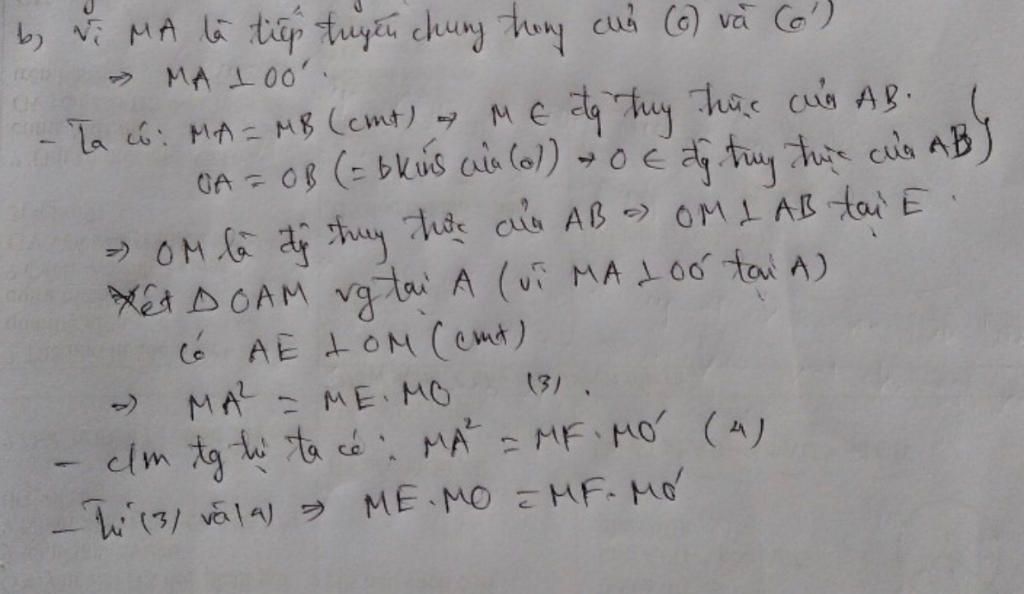 b) Vì MA là tiếp tuyến chung trong của (O) và (O')
⇒ MA ⊥ OO'.
- Ta có: MA = MB (cmt) ⇒ M ∈ đg trung trực của AB.
OA = OB (= bkính của (O)) ⇒ O ∈ đg trung trực của AB }
⇒ OM là đg trung trực của AB ⇒ OM ⊥ AB tại E.
Xét Δ OAM vg tại A (vì MA ⊥ OO' tại A)
có AE ⊥ OM (cmt)
⇒ MA² = ME. MO (3).
- c/m tg tự ta có: MA² = MF. MO' (4)
- Từ (3) và (4) ⇒ ME. MO = MF. MO'